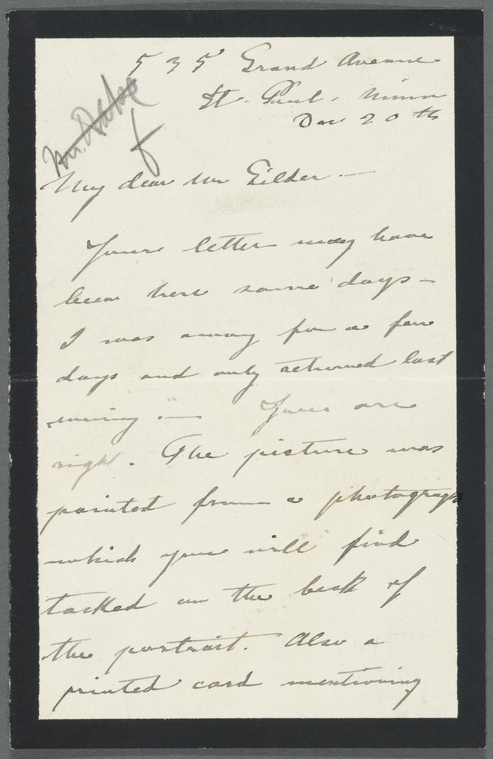 535 Grand Avenue
St. Paul. Minn
Dec 20th
My dear Mr Gilder —
Your letter may have
been here some days —
I was away for a few
days and only returned last
evening. — You are
right. The picture was
painted from a photograph
which you will find
tacked on the back of
the portrait. Also a
printed card mentioning